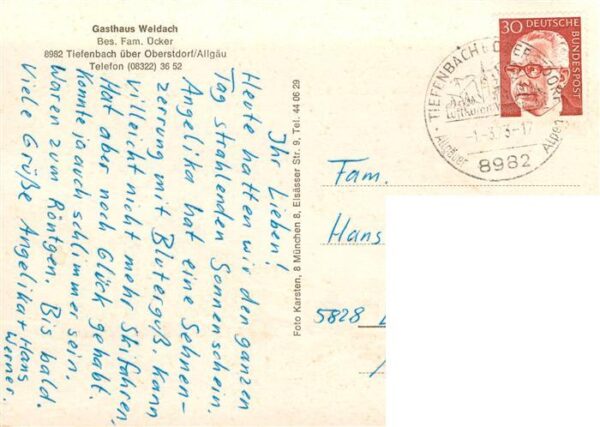 Gasthaus Weidach
Bes. Fam. Ücker
8982 Tiefenbach über Oberstdorf/Allgäu
Telefon (08322) 36 52
Ihr Lieben!
Heute hatten wir den ganzen
Tag strahlenden Sonnenschein.
Angelika hat eine Sehnen-
zerrung mit Bluterguß. Kann
villeicht nicht mehr Skifahren.
Hat aber noch Glück gehabt.
Konnte ja auch schlimmer sein.
Waren zum Röntgen. Bis bald.
Viele Grüße Angelika + Hans
Werner.
Foto Karsten, 8 München 8, Elsässer Str. 9, Tel. 44 06 29
30 DEUTSCHE
BUNDESPOST
TIEFENBACH
8982
Fam.
Hans
5828